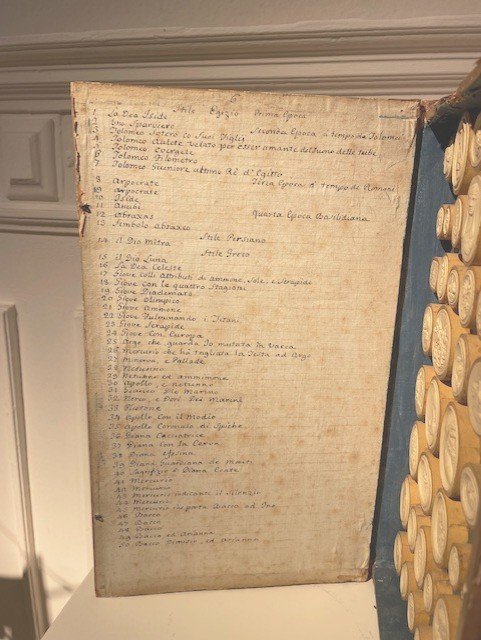 Stile Egizio Prima Epoca
1 La Dea Iside
2 Uno Sparviero
Seconda Epoca a tempo de Tolomei
3 Tolomeo Sotero co Suoi Figli
4 Tolomeo Aulete velato per esser amante del suono delle tibie
5 Tolomeo Evergete
6 Tolomeo Filometro
7 Tolomeo Giuniore ultimo Rè d'Egitto
Terza Epoca a' tempo de Romani
8 Arpocrate
9 Arpocrate
10 Iside
11 Anubi
Quarta Epoca Basilidiana
12 Abraxas
13 Simbolo Abraxeo
Stile Persiano
14 il Dio Mitra
Stile Greco
15 il Dio Luna
16 La Dea Celeste
17 Giove colli Attributi di ammone, Sole, e Serapide
18 Giove con le quattro Stagioni
19 Giove Diademato
20 Giove Olimpico
21 Giove Ammone
22 Giove Fulminando i Titani
23 Giove Serapide
24 Giove con Europa
25 Argo che guarda Io mutata in Vacca
26 Mercurio che ha tagliata la Testa ad Argo
27 Minerva, e Pallade
28 Nettunno
29 Nettunno ed ammimone
30 Apollo, e nettunno
31 Glauco Dio Marino
32 Nereo, e Dori Dei Marini
33 Plutone
34 Apollo Con il Modio
35 Apollo Coronato di Spiche
36 Diana Cacciatrice
37 Diana Con la Cerva
38 Diana efesina
39 Diana Guardiana de monti
40 Sagrifizio à Diana Ecate
41 Mercurio
42 Mercurio
43 Mercurio indicante il Silenzio
44 Mercurio
45 Mercurio che porta Bacco ad Ino
46 Bacco
47 Bacco
48 Bacco
49 Bacco ed Arianna
50 Bacco ed Arianna